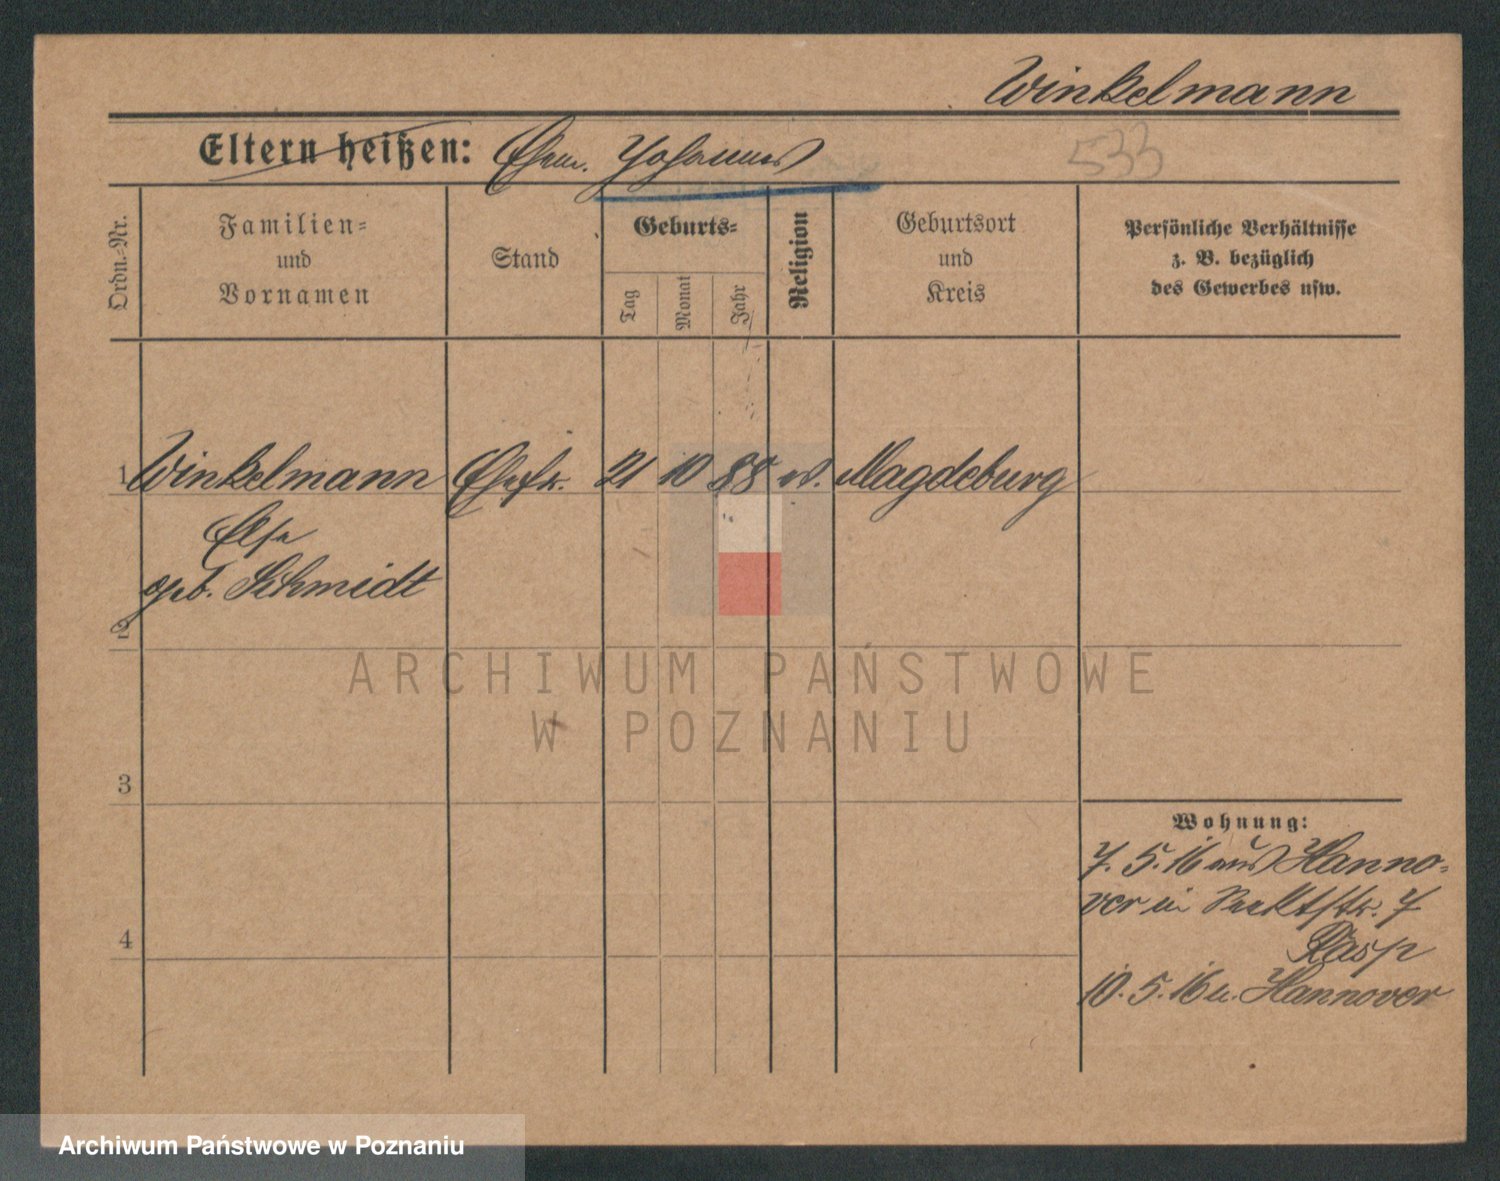 Winkelmann
Eltern heißen: Ehem. Johannes
533
Ordn.-Nr.
Familien-
und
Vornamen
Stand
Geburts-
Tag
Monat
Jahr
Religion
Geburtsort
und
Kreis
Persönliche Verhältnisse
z. B. bezüglich
des Gewerbes usw.
1 Winkelmann Ehefr. 21 10 88 ev. Magdeburg
Else
geb. Schmidt
2
ARCHIWUM PAŃSTWOWE
W POZNANIU
3
Wohnung:
7. 5. 16 aus Hanno-
ver in 7
4
Rasp
10. 5. 16 n. Hannover
Archiwum Państwowe w Poznaniu